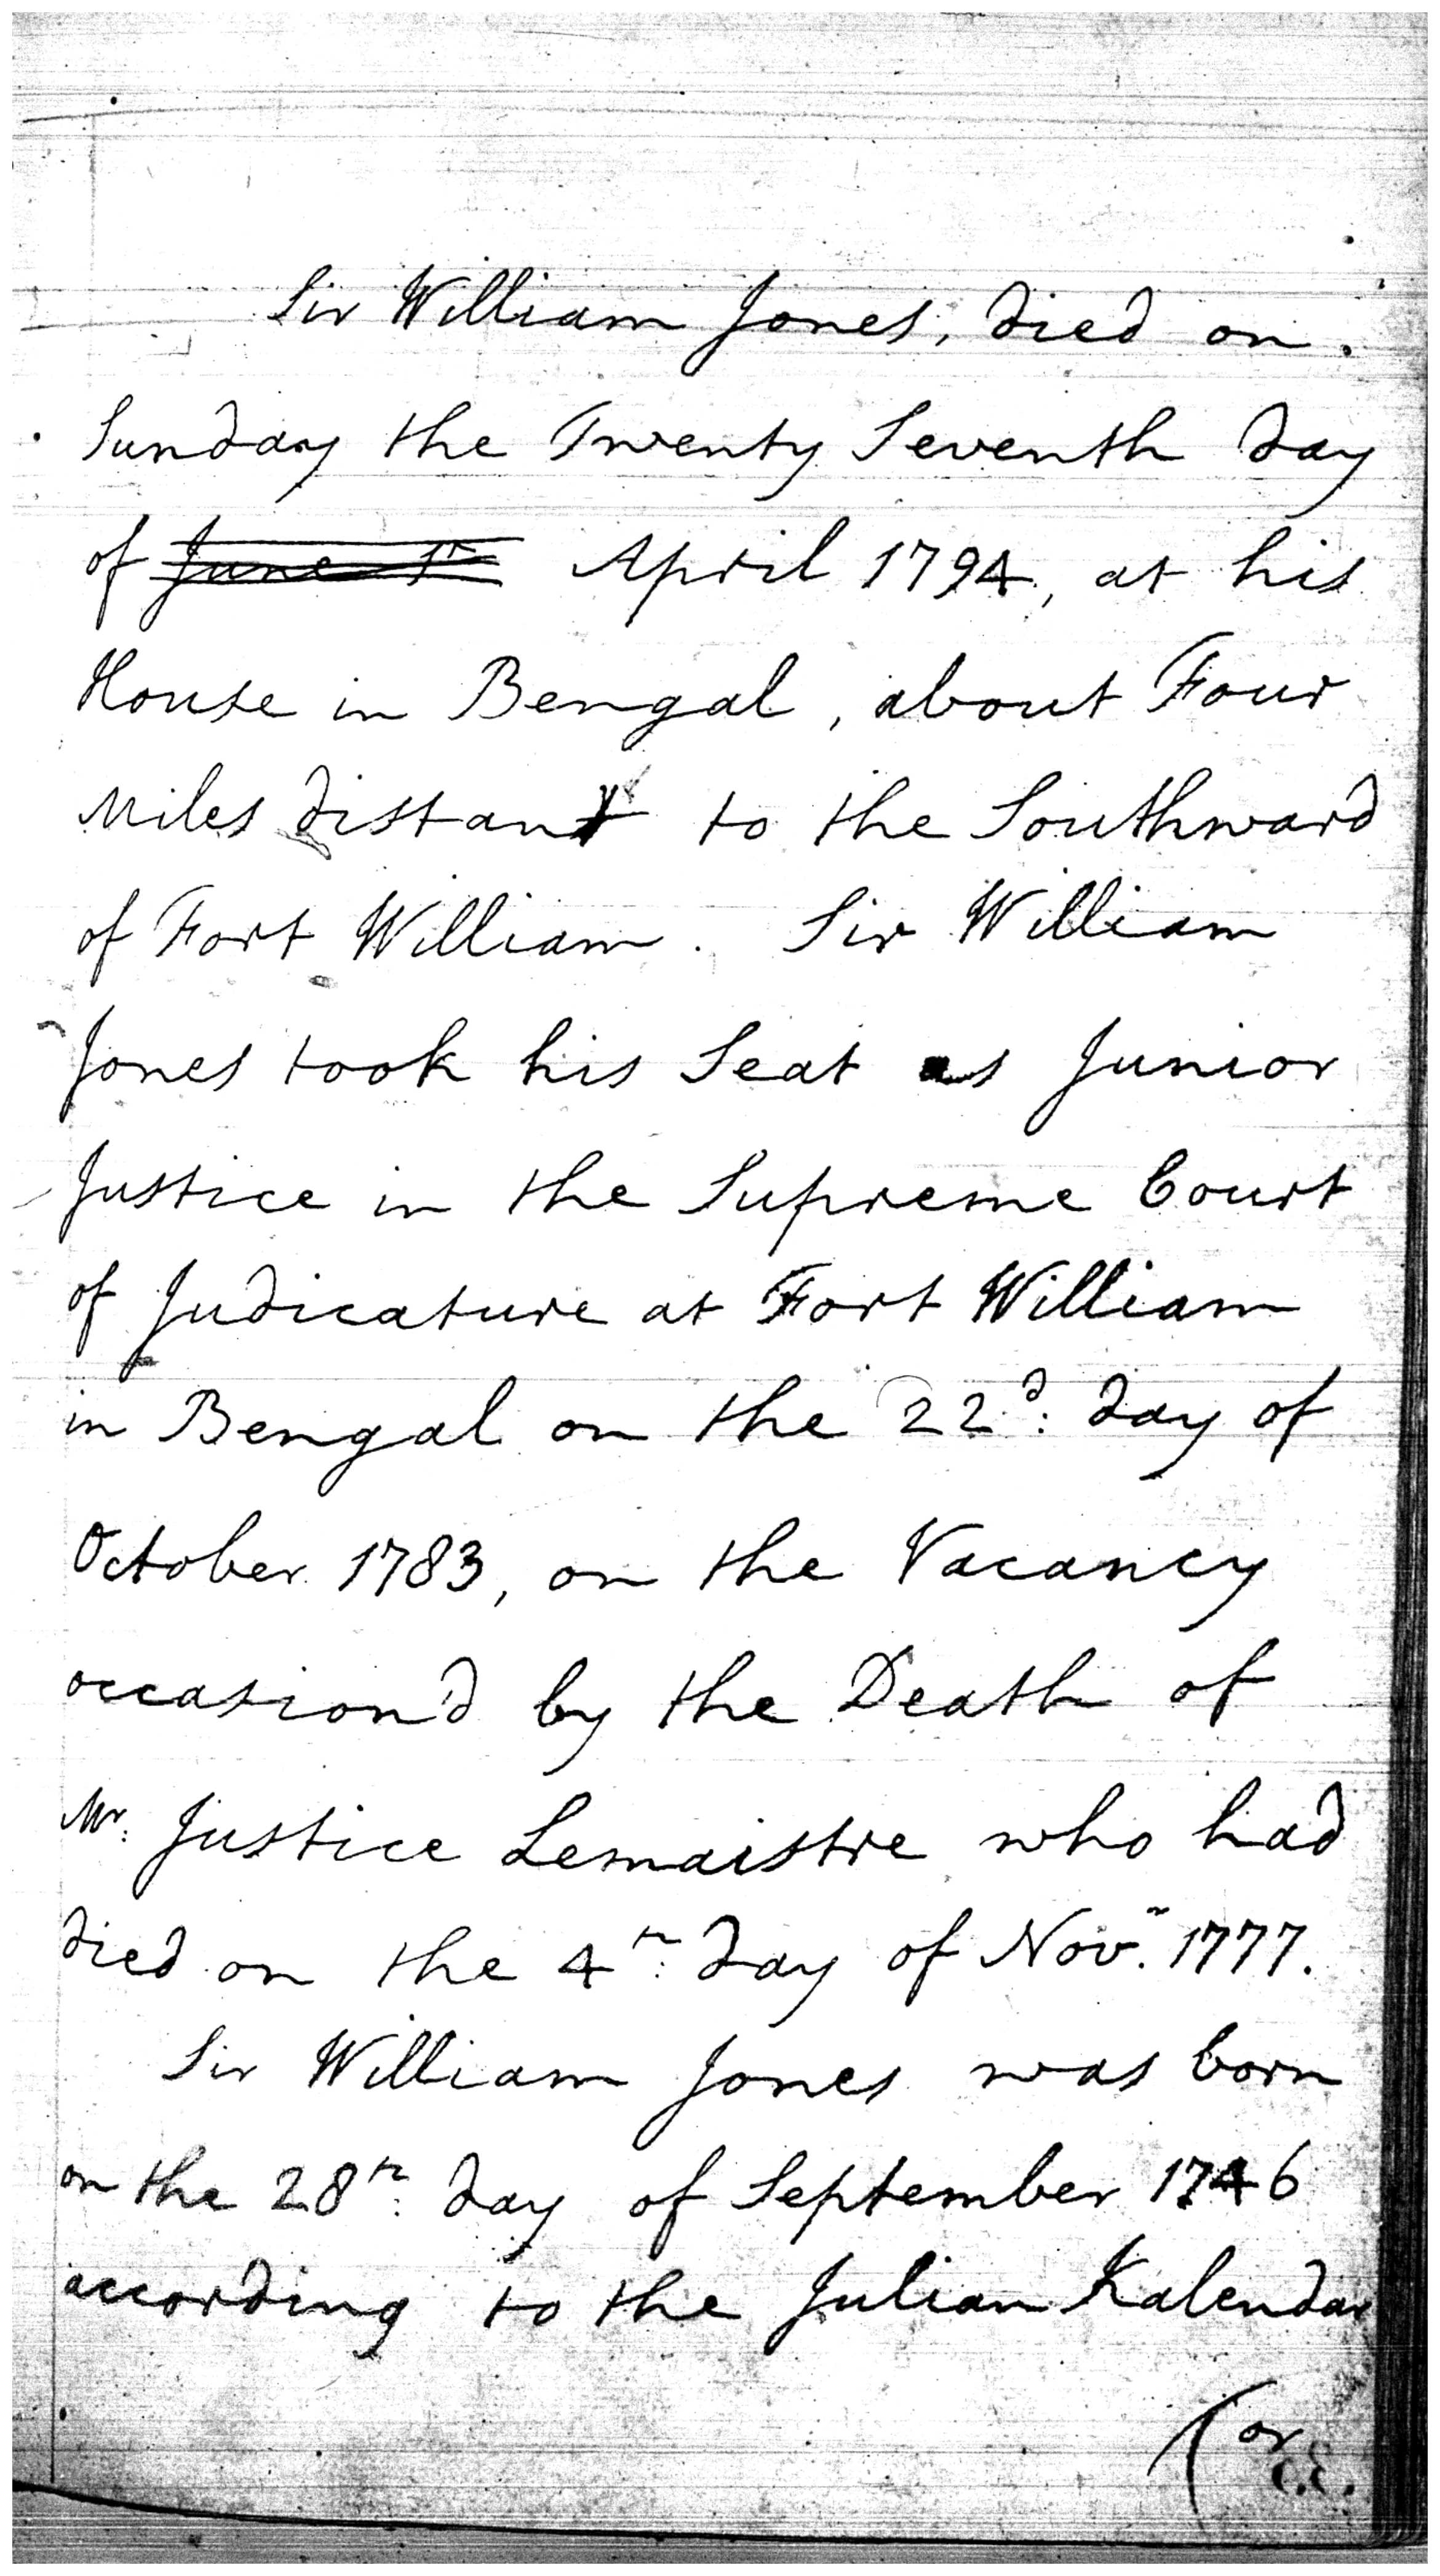 Sir William Jones, died on
Sunday the Twenty Seventh day
of June 1st April 1794, at his
House in Bengal, about Four
Miles distant to the Southward
of Fort William. Sir William
Jones took his Seat as Junior
Justice in the Supreme Court
of Judicature at Fort William
in Bengal on the 22d: day of
October 1783, on the Vacancy
occasion'd by the Death of
Mr: Justice Lemaistre who had
died on the 4th: day of Novr. 1777.
Sir William Jones was born
on the 28th: day of September 1746
according to the Julian Kalendar
(or